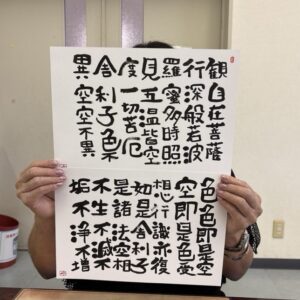 観自在菩薩
行深般若波
羅蜜多時照
見五蘊皆空
度一切苦厄
舎利子色不
異空空不異
色色即是空
空即是色受
想行識亦復
如是舎利子
是諸法空相
不生不滅不
垢不浄不増